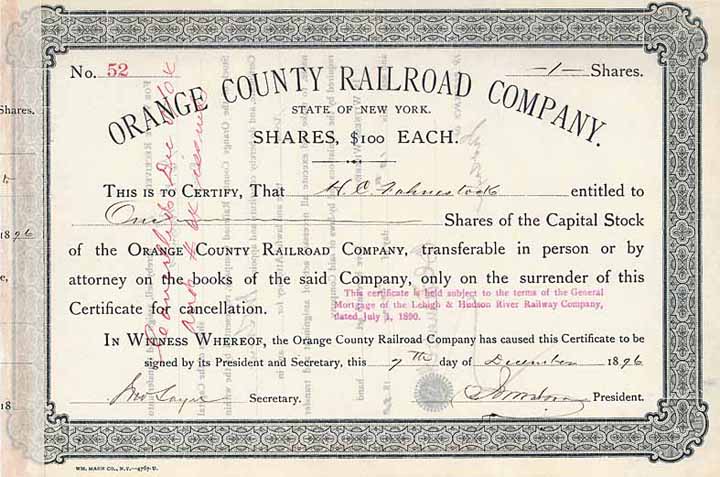 No. 52
—1— Shares.
ORANGE COUNTY RAILROAD COMPANY.
STATE OF NEW YORK.
SHARES, $100 EACH.
THIS IS TO CERTIFY, That H. C. Fahnestock entitled to
One Shares of the Capital Stock
of the ORANGE COUNTY RAILROAD COMPANY, transferable in person or by
attorney on the books of the said Company, only on the surrender of this
Certificate for cancellation.
This certificate is held subject to the terms of the General
Mortgage of the Lehigh & Hudson River Railway Company,
dated July 1, 1890.
IN WITNESS WHEREOF, the Orange County Railroad Company has caused this Certificate to be
signed by its President and Secretary, this 7th day of December 1896
Jno Sayer Secretary.
President.
Cancelled Dec
Shares.
1896
e,
18
WM. MANN CO., N.Y.—4767-U.